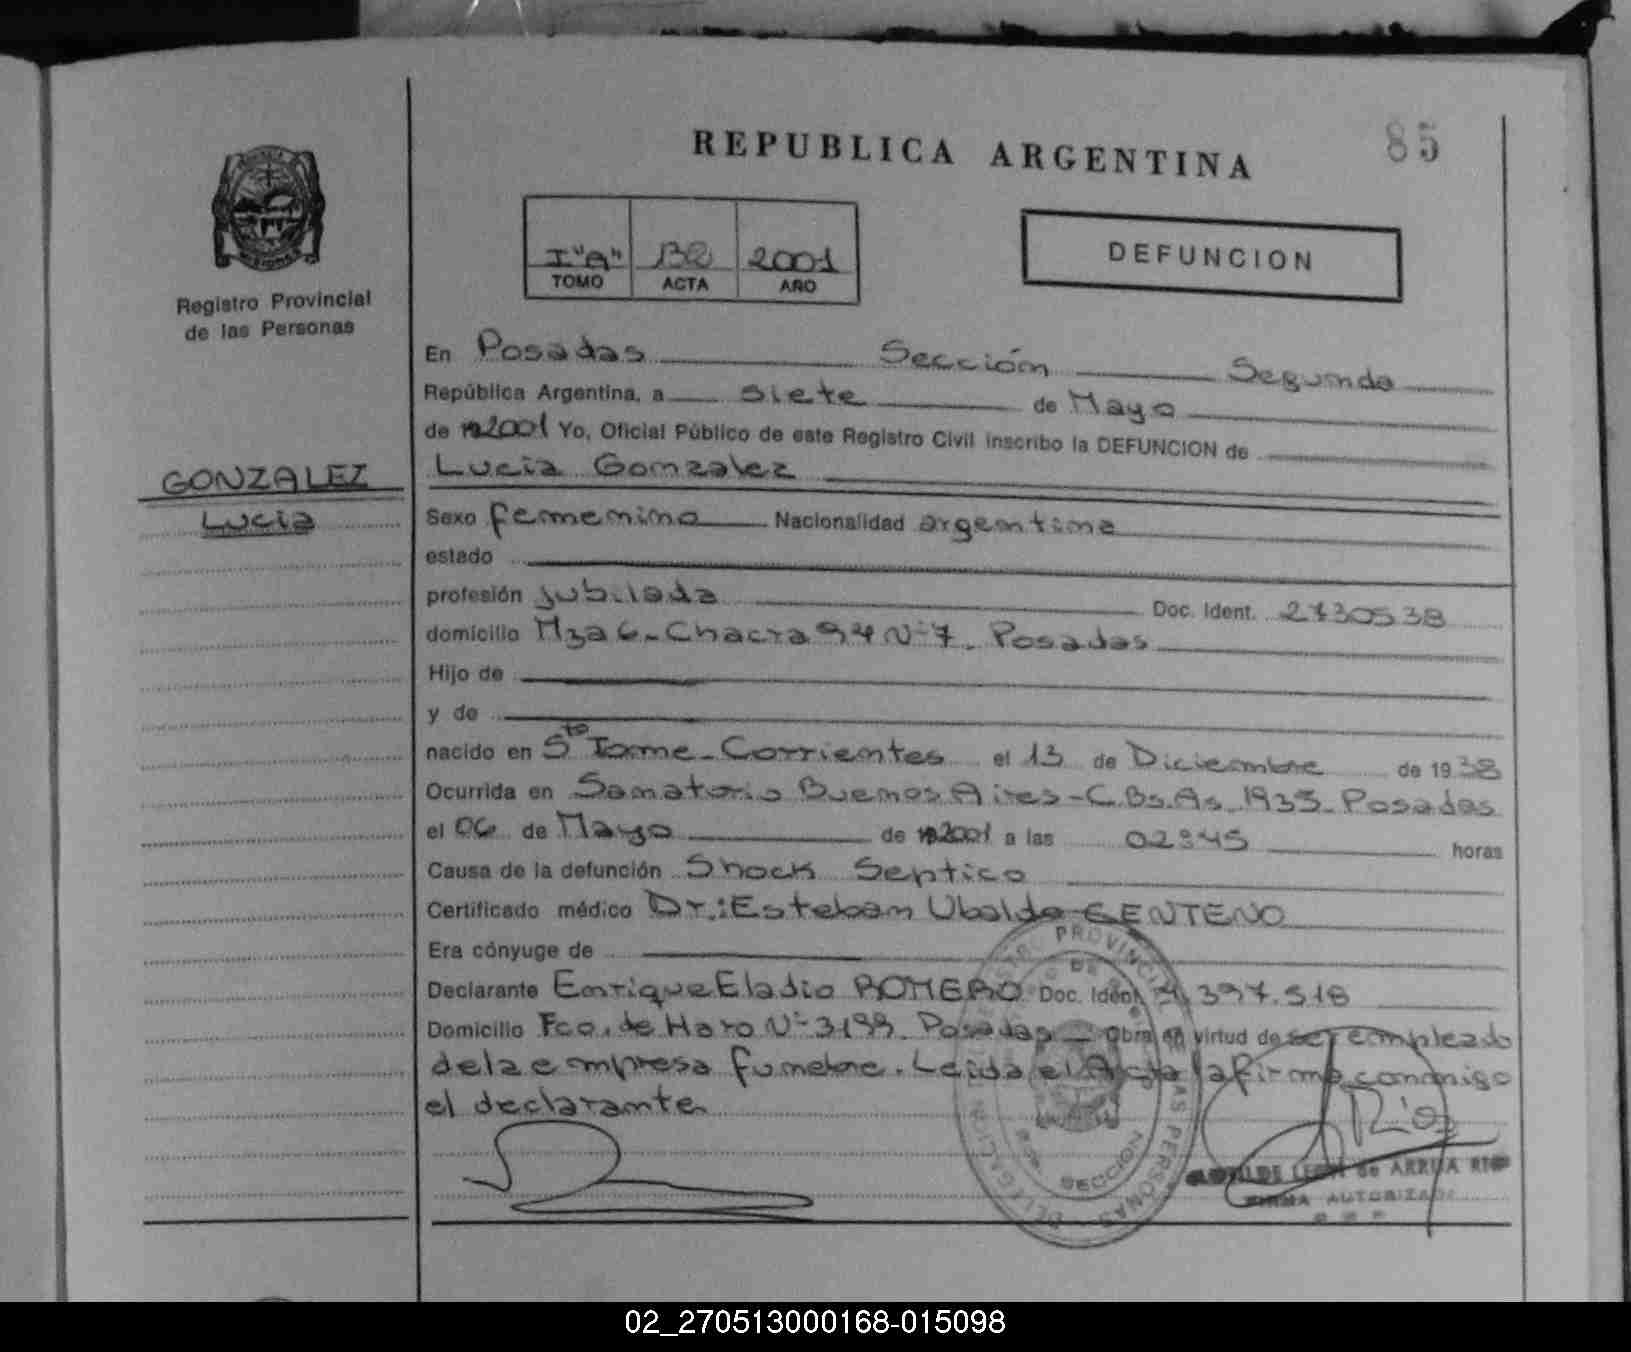 REPUBLICA ARGENTINA
85
MISIONES
Registro Provincial
de las Personas
I "A" 132 2001
TOMO ACTA AÑO
DEFUNCION
En Posadas Sección Segunda
República Argentina, a siete de Mayo
de 2001 Yo, Oficial Público de este Registro Civil inscribo la DEFUNCION de
GONZALEZ
Lucia
Lucia Gonzalez
Sexo femenino Nacionalidad argentina
estado
profesión jubilada Doc. Ident. 2730538
domicilio Mza 6 - Chacra 94 Nº 7 - Posadas
Hijo de
y de
nacido en Sto Tome - Corrientes el 13 de Diciembre de 1938
Ocurrida en Sanatorio Buenos Aires - C. Bs. As. 1935 - Posadas
el 06 de Mayo de 2001 a las 02:45 horas
Causa de la defunción Shock Septico
Certificado médico Dr.: Esteban Ubaldo CENTENO
Era cónyuge de
Declarante Enrique Eladio ROMERO Doc. Ident. 7.397.518
Domicilio Fco. de Haro Nº 3199 - Posadas Obra en virtud de ser empleado
de la empresa funebre. Leida el Acta la firma conmigo
el declarante
REGISTRO PROVINCIAL DE LAS PERSONAS
DELEGACION
SECCION
Rios
LEON de ARRUA RIOS
FIRMA AUTORIZADA
02_270513000168-015098